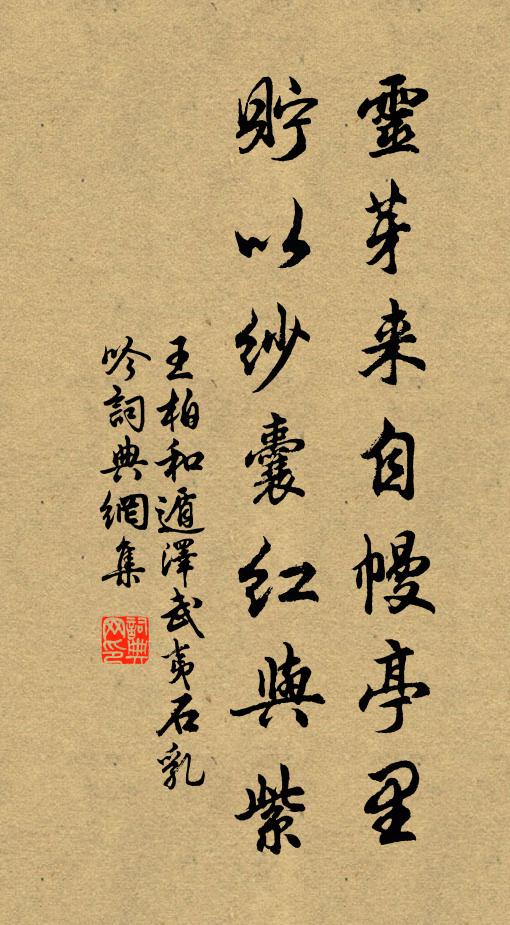 靈芽来自幔亭里
貯以紗囊紅與紫
王柏和遁澤武夷石乳
吟詞典網集
詞典网印